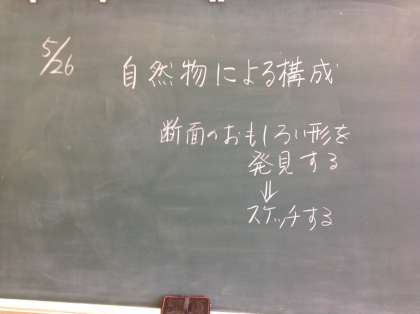 5/26
自然物による構成
断面のおもしろい形を
発見する
⇓
スケッチする